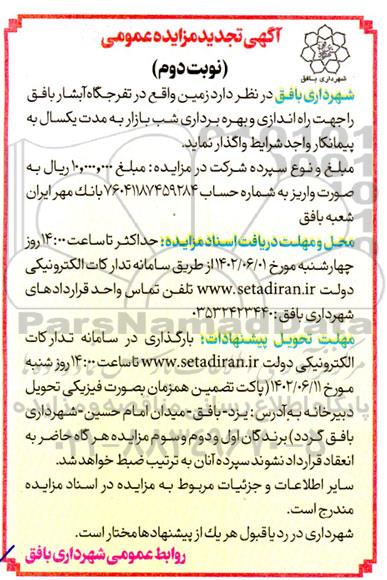 آگهی تجدید مزایده عمومی
(نوبت دوم)
شهرداری بافق
شهرداری بافق در نظر دارد زمین واقع در تفرجگاه آبشار بافق
را جهت راه اندازی و بهره برداری شب بازار به مدت یکسال به
پیمانکار واجد شرایط واگذار نماید.
مبلغ و نوع سپرده شرکت در مزایده: مبلغ ۱۰,۰۰۰,۰۰۰ ریال به
صورت واریز به شماره حساب ۷۶۰۴۱۱۸۷۴۵۹۲۸۴ بانک مهر ایران
شعبه بافق
محل و مهلت دریافت اسناد مزایده: حداکثر تا ساعت ۱۴:۰۰ روز
چهارشنبه مورخ ۱۴۰۲/۰۶/۰۱ از طریق سامانه تدارکات الکترونیکی
دولت www.setadiran.ir تلفن تماس واحد قراردادهای
شهرداری بافق: ۰۳۵۳۲۴۲۳۴۴۰
مهلت تحویل پیشنهادات: بارگذاری در سامانه تدارکات
الکترونیکی دولت www.setadiran.ir تا ساعت ۱۴:۰۰ روز شنبه
مورخ ۱۴۰۲/۰۶/۱۱ (پاکت تضمین همزمان بصورت فیزیکی تحویل
دبیرخانه به آدرس: یزد- بافق - میدان امام حسین - شهرداری
بافق گردد) برندگان اول و دوم و سوم مزایده هر گاه حاضر به
انعقاد قرارداد نشوند سپرده آنان به ترتیب ضبط خواهد شد.
سایر اطلاعات و جزئیات مربوط به مزایده در اسناد مزایده
مندرج است.
شهرداری در رد یا قبول هر یک از پیشنهادها مختار است.
روابط عمومی شهرداری بافق
ParsNamadData